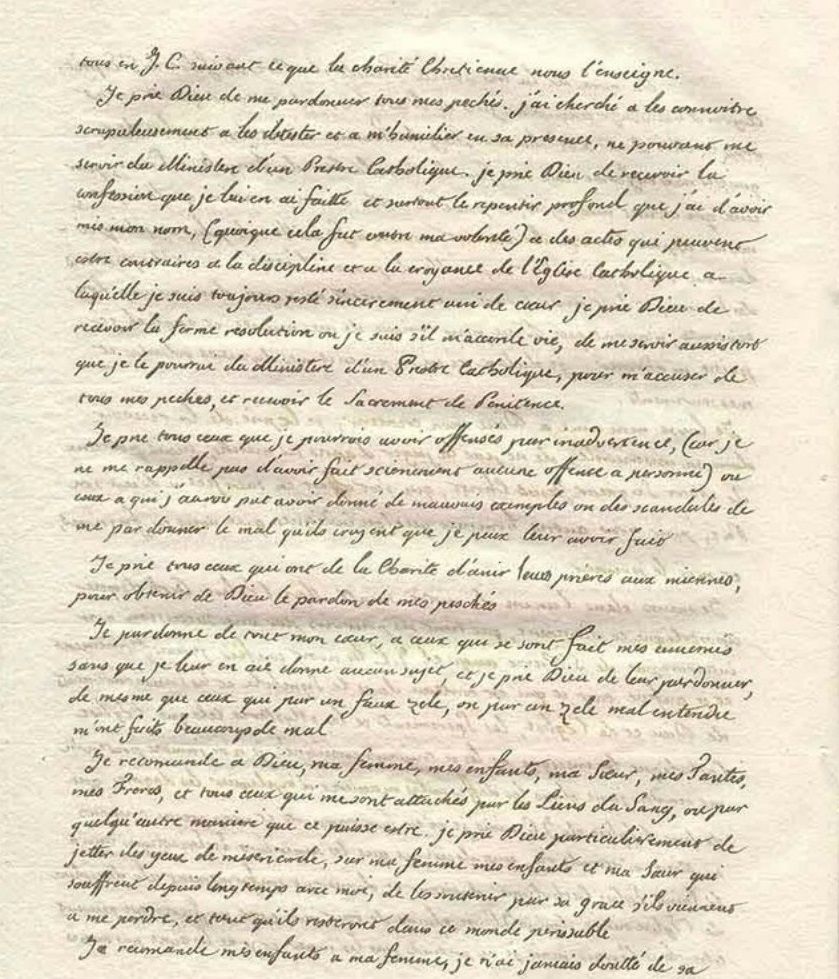 tous en J. C. suivant ce que la charité Chretienne nous l'enseigne.
Je prie Dieu de me pardonner tous mes pechés. j'ai cherché a les connoitre
scrupuleusement a les detester et a m'humilier en sa presence, ne pouvant me
servir du Ministere d'un Prestre Catholique. je prie Dieu de recevoir la
confession que je lui en ai faitte et surtout le repentir profond que j'ai d'avoir
mis mon nom, (quoique cela fut contre ma volonté) a des actes qui peuvent
estre contraires a la discipline et a la croyance de l'Eglise Catholique a
laqu'elle je suis toujours resté sincerement uni de cœur je prie Dieu de
recevoir la ferme resolution ou je suis s'il m'accorde vie, de me servir aussistost
que je le pourrai du Ministere d'un Prestre Catholique, pour m'accuser de
tous mes peches, et recevoir le Sacrement de Penitence.
Je prie tous ceux que je pourrois avoir offensés par inadvertence, (car je
ne me rappelle pas d'avoir fait sciemment aucune offence a personne) ou
ceux a qui j'aurois put avoir donné de mauvais exemples ou des scandales de
me pardonner le mal qu'ils croyent que je peux leur avoir fait
Je prie tous ceux qui ont de la Charité d'unir leurs prieres aux miennes,
pour obtenir de Dieu le pardon de mes peschés
Je pardonne de tout mon cœur, a ceux qui se sont fait mes ennemis
sans que je leur en aie donne aucun sujet, et je prie Dieu de leur pardonner,
de mesme que ceux qui par un faux zele, ou par un zele mal entendu
m'ont faits beaucoup de mal
Je recomande a Dieu, ma femme, mes enfants, ma Sœur, mes Tantes,
mes Freres, et tous ceux qui me sont attachés par les Liens du Sang, ou par
quelqu'autre maniere que ce puisse estre. je prie Dieu particulierement de
jetter des yeux de misericorde, sur ma femme mes enfants et ma Sœur qui
souffrent depuis longtemps avec moi, de les soutenir par sa grace s'ils viennent
a me perdre, et tant qu'ils resteront dans ce monde perissable
Je recomande mes enfants a ma femme, je n'ai jamais doutté de sa